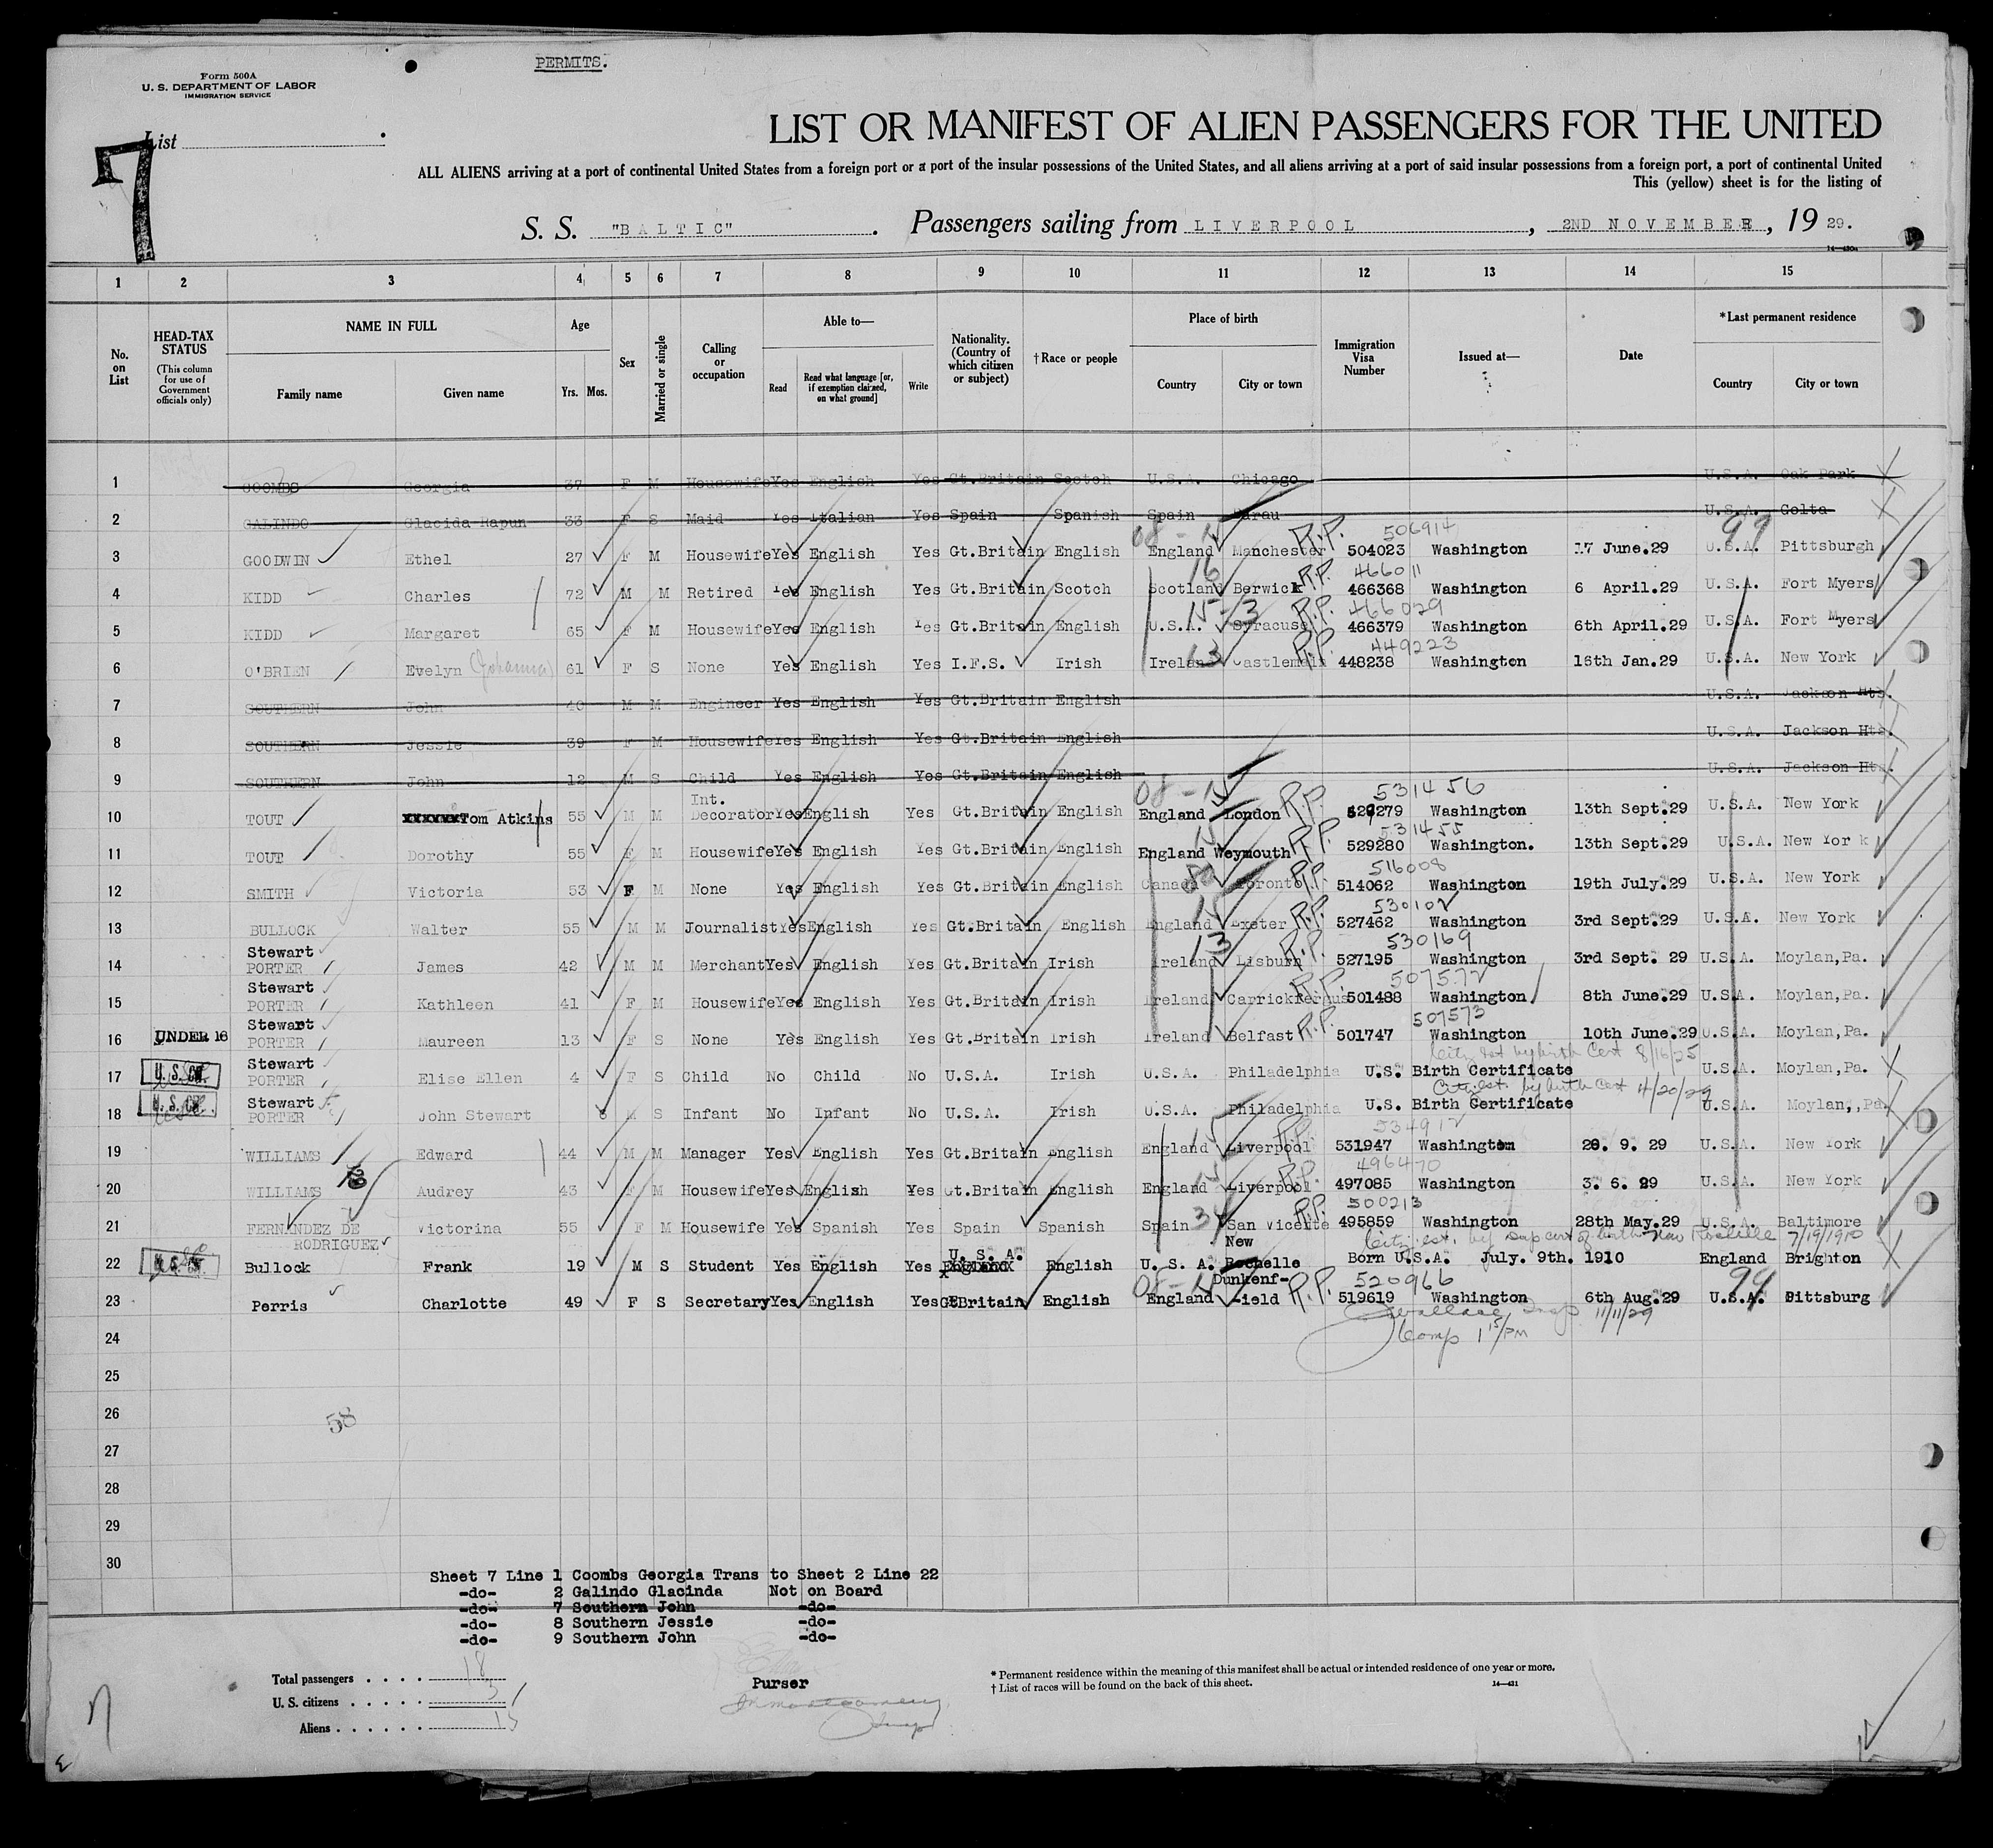 PERMITS.
Form 500A
U. S. DEPARTMENT OF LABOR
IMMIGRATION SERVICE
List
7
LIST OR MANIFEST OF ALIEN PASSENGERS FOR THE UNITED
ALL ALIENS arriving at a port of continental United States from a foreign port or a port of the insular possessions of the United States, and all aliens arriving at a port of said insular possessions from a foreign port, a port of continental United
This (yellow) sheet is for the listing of
S. S. "BALTIC". Passengers sailing from LIVERPOOL, 2ND NOVEMBER, 19 29.
14-430a
1 2 3 4 5 6 7 8 9 10 11 12 13 14 15
No. on List
HEAD-TAX STATUS
(This column for use of Government officials only)
NAME IN FULL
Family name Given name
Age
Yrs. Mos.
Sex
Married or single
Calling or occupation
Able to—
Read
Read what language [or, if exemption claimed, on what ground]
Write
Nationality. (Country of which citizen or subject)
† Race or people
Place of birth
Country City or town
Immigration Visa Number
Issued at—
Date
* Last permanent residence
Country City or town
1 COOMBS Georgia 37 F M Housewife Yes English Yes Gt.Britain Scotch U.S.A. Chicago U.S.A. Oak Park
2 GALINDO Glacida Rapun 33 F S Maid Yes Italian Yes Spain Spanish Spain U.S.A. Colta
08 - 506914 99
3 GOODWIN Ethel 27 F M Housewife Yes English Yes Gt.Britain English England Manchester R.P. 504023 Washington 17 June.29 U.S.A. Pittsburgh
16 466011
4 KIDD Charles 72 M M Retired Yes English Yes Gt.Britain Scotch Scotland Berwick R.P. 466368 Washington 6 April.29 U.S.A. Fort Myers
15-3 466029
5 KIDD Margaret 65 F M Housewife Yes English Yes Gt.Britain English U.S.A. Syracuse R.P. 466379 Washington 6th April.29 U.S.A. Fort Myers
13 449223
6 O'BRIEN Evelyn (Johanna) 61 F S None Yes English Yes I.F.S. Irish Ireland Castlemain R.P. 448238 Washington 16th Jan.29 U.S.A. New York
7 SOUTHERN John 40 M M Engineer Yes English Yes Gt.Britain English U.S.A. Jackson Hts.
8 SOUTHERN Jessie 39 F M Housewife Yes English Yes Gt.Britain English U.S.A. Jackson Hts.
9 SOUTHERN John 12 M S Child Yes English Yes Gt.Britain English U.S.A. Jackson Hts.
08 - 531456
10 TOUT xxxxxx Tom Atkins 55 M M Int. Decorator Yes English Yes Gt.Britain English England London R.P. 529279 Washington 13th Sept.29 U.S.A. New York
531455
11 TOUT Dorothy 55 F M Housewife Yes English Yes Gt.Britain English England Weymouth R.P. 529280 Washington. 13th Sept.29 U.S.A. New York
516008
12 SMITH Victoria 53 F M None Yes English Yes Gt.Britain English Canada Toronto R.P. 514062 Washington 19th July.29 U.S.A. New York
530102
13 BULLOCK Walter 55 M M Journalist Yes English Yes Gt.Britain English England Exeter R.P. 527462 Washington 3rd Sept.29 U.S.A. New York
13 530169
14 Stewart PORTER James 42 M M Merchant Yes English Yes Gt.Britain Irish Ireland Lisburn R.P. 527195 Washington 3rd Sept. 29 U.S.A. Moylan,Pa.
507572
15 Stewart PORTER Kathleen 41 F M Housewife Yes English Yes Gt.Britain Irish Ireland Carrickfergus R.P. 501488 Washington 8th June.29 U.S.A. Moylan,Pa.
507573
16 UNDER 16 Stewart PORTER Maureen 13 F S None Yes English Yes Gt.Britain Irish Ireland Belfast R.P. 501747 Washington 10th June.29 U.S.A. Moylan,Pa.
City est by birth Cert 8/16/25
17 U.S.C. Stewart PORTER Elise Ellen 4 F S Child No Child No U.S.A. Irish U.S.A. Philadelphia U.S. Birth Certificate U.S.A. Moylan,Pa.
City est. by birth cert 4/20/29
18 U.S.C. Stewart PORTER John Stewart 6 M S Infant No Infant No U.S.A. Irish U.S.A. Philadelphia U.S. Birth Certificate U.S.A. Moylan,,Pa.
534912
19 WILLIAMS Edward 44 M M Manager Yes English Yes Gt.Britain English England Liverpool R.P. 531947 Washington 20. 9. 29 U.S.A. New York
496470
20 WILLIAMS Audrey 43 F M Housewife Yes English Yes Gt.Britain English England Liverpool R.P. 497085 Washington 3. 6. 29 U.S.A. New York
34 500213
21 FERNANDEZ DE RODRIGUEZ Victorina 55 F M Housewife Yes Spanish Yes Spain Spanish Spain San Vicente R.P. 495859 Washington 28th May.29 U.S.A. Baltimore
City est. by cert of birth New Rochelle 7/19/1910
22 U.S.C. Bullock Frank 19 M S Student Yes English Yes U. S. A. English U. S. A. New Rochelle Born U.S.A. July. 9th. 1910 England Brighton
08 - 520966 99
23 Perris Charlotte 49 F S Secretary Yes English Yes Gt.Britain English England Dunkenf-ield R.P. 519619 Washington 6th Aug.29 U.S.A. Pittsburg
Wallace Insp 11/11/29
Comp 1 15/PM
24
25
26
58
27
28
29
30
Sheet 7 Line 1 Coombs Georgia Trans to Sheet 2 Line 22
-do- 2 Galindo Glacinda Not on Board
-do- 7 Southern John -do-
-do- 8 Southern Jessie -do-
-do- 9 Southern John -do-
Total passengers 18
U. S. citizens 3
Aliens 15
Purser
Montgomery
Insp
* Permanent residence within the meaning of this manifest shall be actual or intended residence of one year or more.
† List of races will be found on the back of this sheet.
14-431